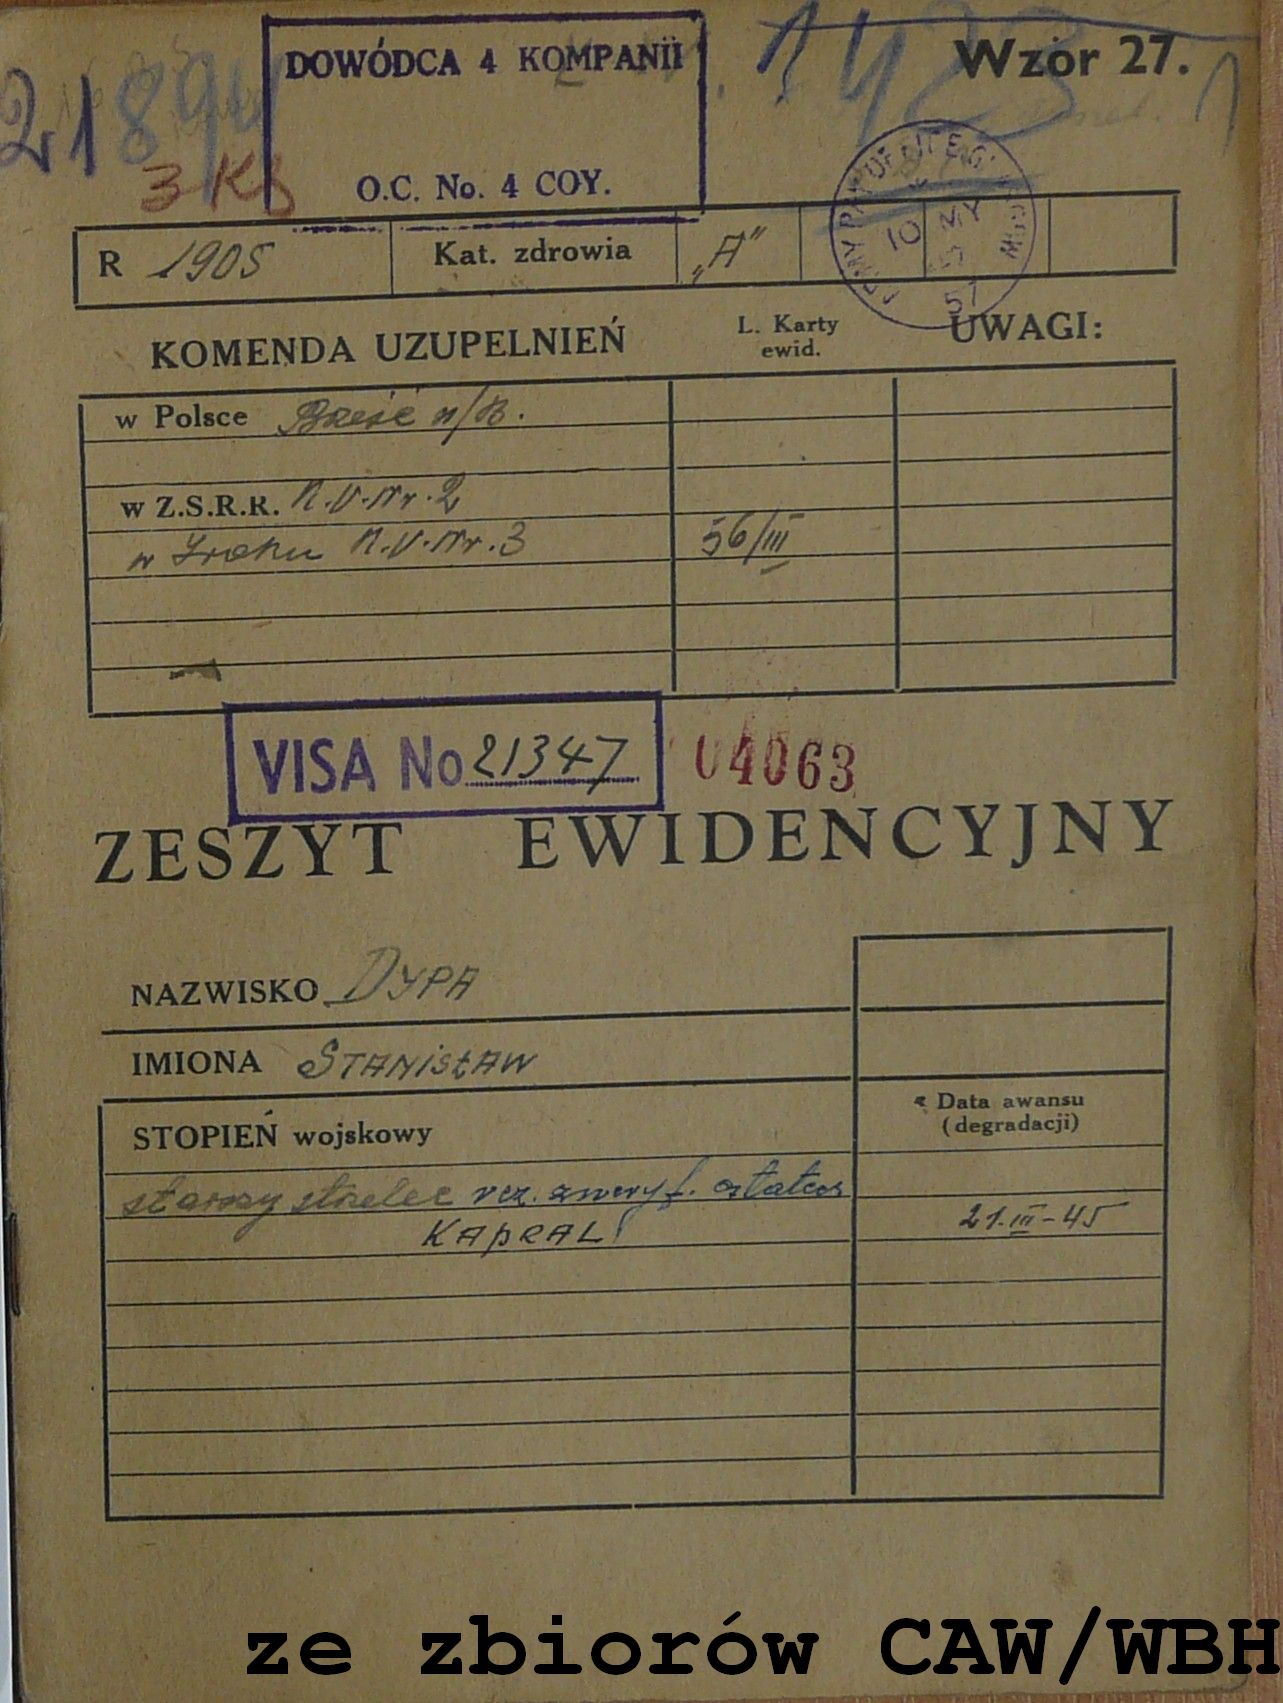 21894
DOWÓDCA 4 KOMPANII
O.C. No. 4 COY.
Wzór 27.
R 1905 Kat. zdrowia „A”
10 MY
57
KOMENDA UZUPELNIEŃ L. Karty ewid. UWAGI:
w Polsce Brześć n/B.
w Z.S.R.R. K.U. Nr. 2
w Iraku K.U. Nr. 3 56/III
VISA No 21347 04063
ZESZYT EWIDENCYJNY
NAZWISKO DYPA
IMIONA STANISŁAW
STOPIEŃ wojskowy Data awansu
(degradacji)
starszy strzelec rez. zweryf.
KAPRAL 21.III-45
ze zbiorów CAW/WBH